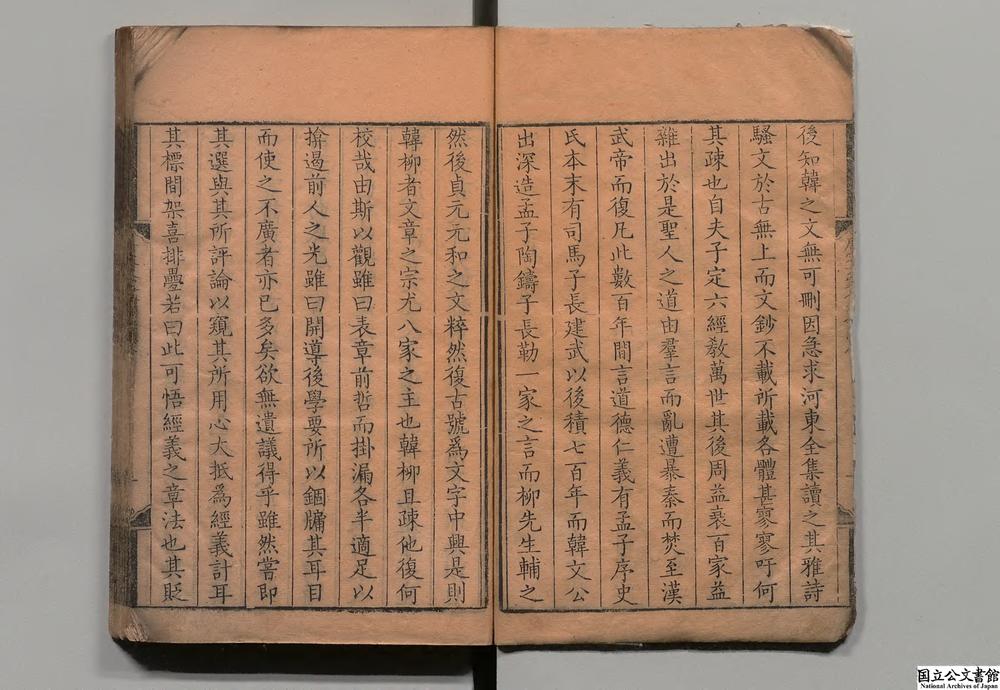 後知韓之文無可刪因急求河東全集讀之其雅詩
騷文於古無上而文鈔不載所載各體甚寥寥吁何
其疎也自夫子定六經敎萬世其後周益衰百家益
雜出於是聖人之道由羣言而亂遭暴秦而焚至漢
武帝而復凡此數百年間言道德仁義有孟子序史
氏本末有司馬子長建武以後積七百年而韓文公
出深造孟子陶鑄子長勒一家之言而柳先生輔之
然後貞元元和之文粹然復古號爲文字中興是則
韓柳者文章之宗尤八家之主也韓柳且疎他復何
校哉由斯以觀雖曰表章前哲而掛漏各半適足以
揜遏前人之光雖曰開導後學要所以錮牖其耳目
而使之不廣者亦已多矣欲無遺議得乎雖然嘗卽
其選與其所評論以窺其所用心大抵爲經義計耳
其標間架喜排疊若曰此可悟經義之章法也其貶
国立公文書館
National Archives of Japan